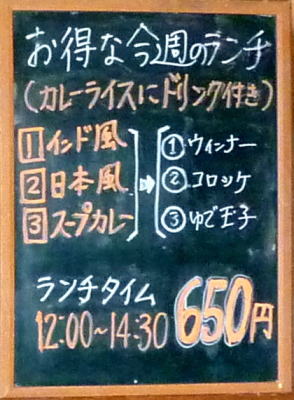 お得な今週のランチ
(カレーライスにドリンク付き)
1 インド風 → ① ウィンナー
2 日本風 ② コロッケ
3 スープカレー ③ ゆで玉子
ランチタイム
12:00~14:30 650円